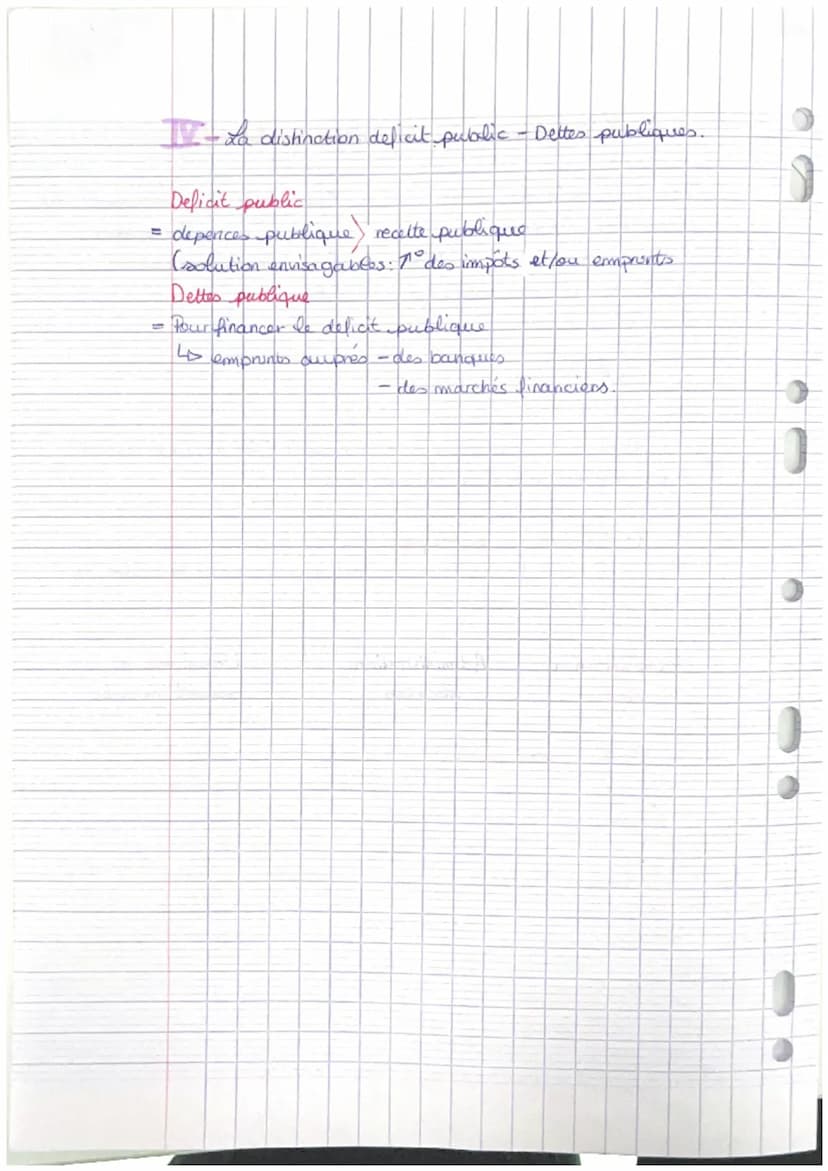 IV - La distinction deficit public - Dettes publiques.
Deficit public
= depences publique > recette publique
(solution envisagables : ↗° des impôts et/ou emprunts
Dettes publique
= Pour financer le deficit publique
↳ emprunts auprés - des banques
- des marchés financiers.